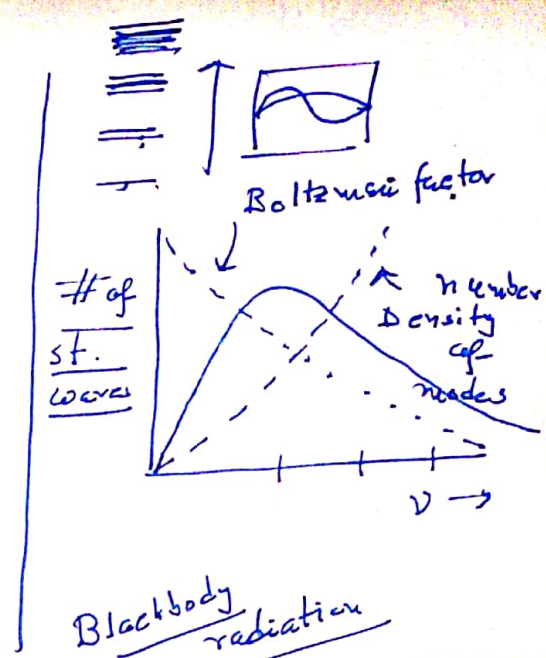 Boltzman factor
# of
st.
waves
number
Density
of
modes
ν →
Blackbody
radiation